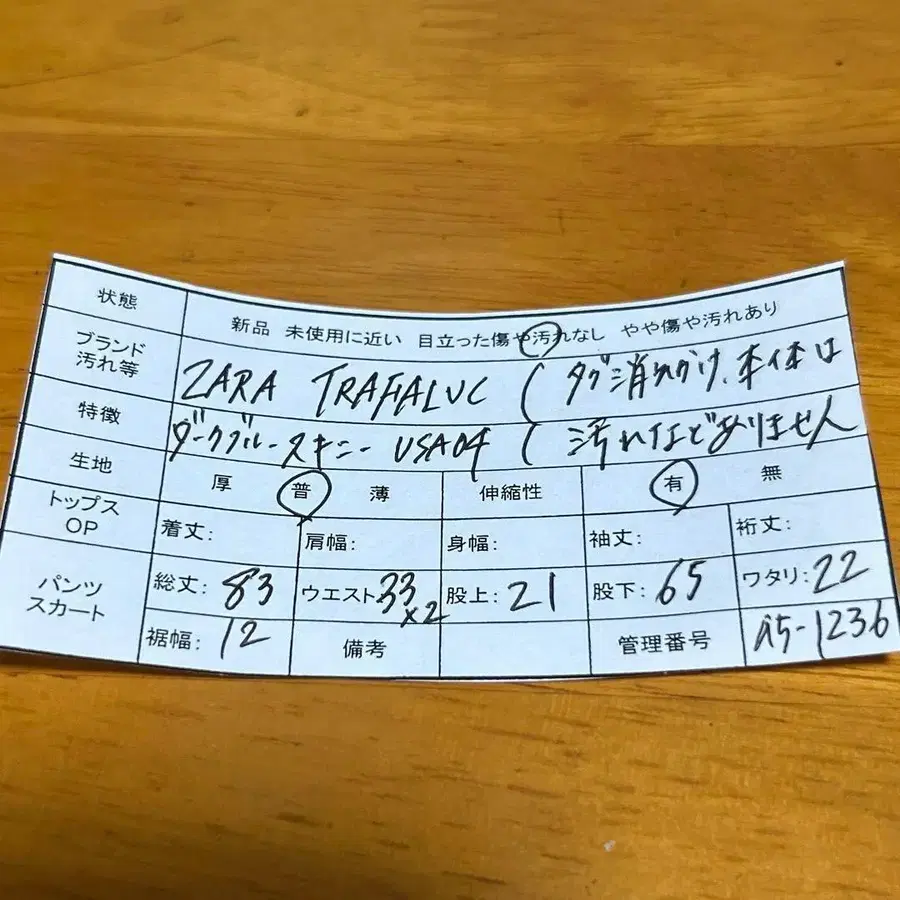 状態 新品 未使用に近い 目立った傷や汚れなし やや傷や汚れあり
ブランド 汚れ等 ZARA TRAFALUC (タグ消えかけ、本体は
特徴 ダークブルースキニー USA04 (汚れなどありません
生地 厚 普 薄 伸縮性 有 無
トップス OP 着丈: 肩幅: 身幅: 袖丈: 裄丈:
パンツ スカート 総丈: 83 ウエスト 33×2 股上: 21 股下: 65 ワタリ: 22
裾幅: 12 備考 管理番号 A5-1236